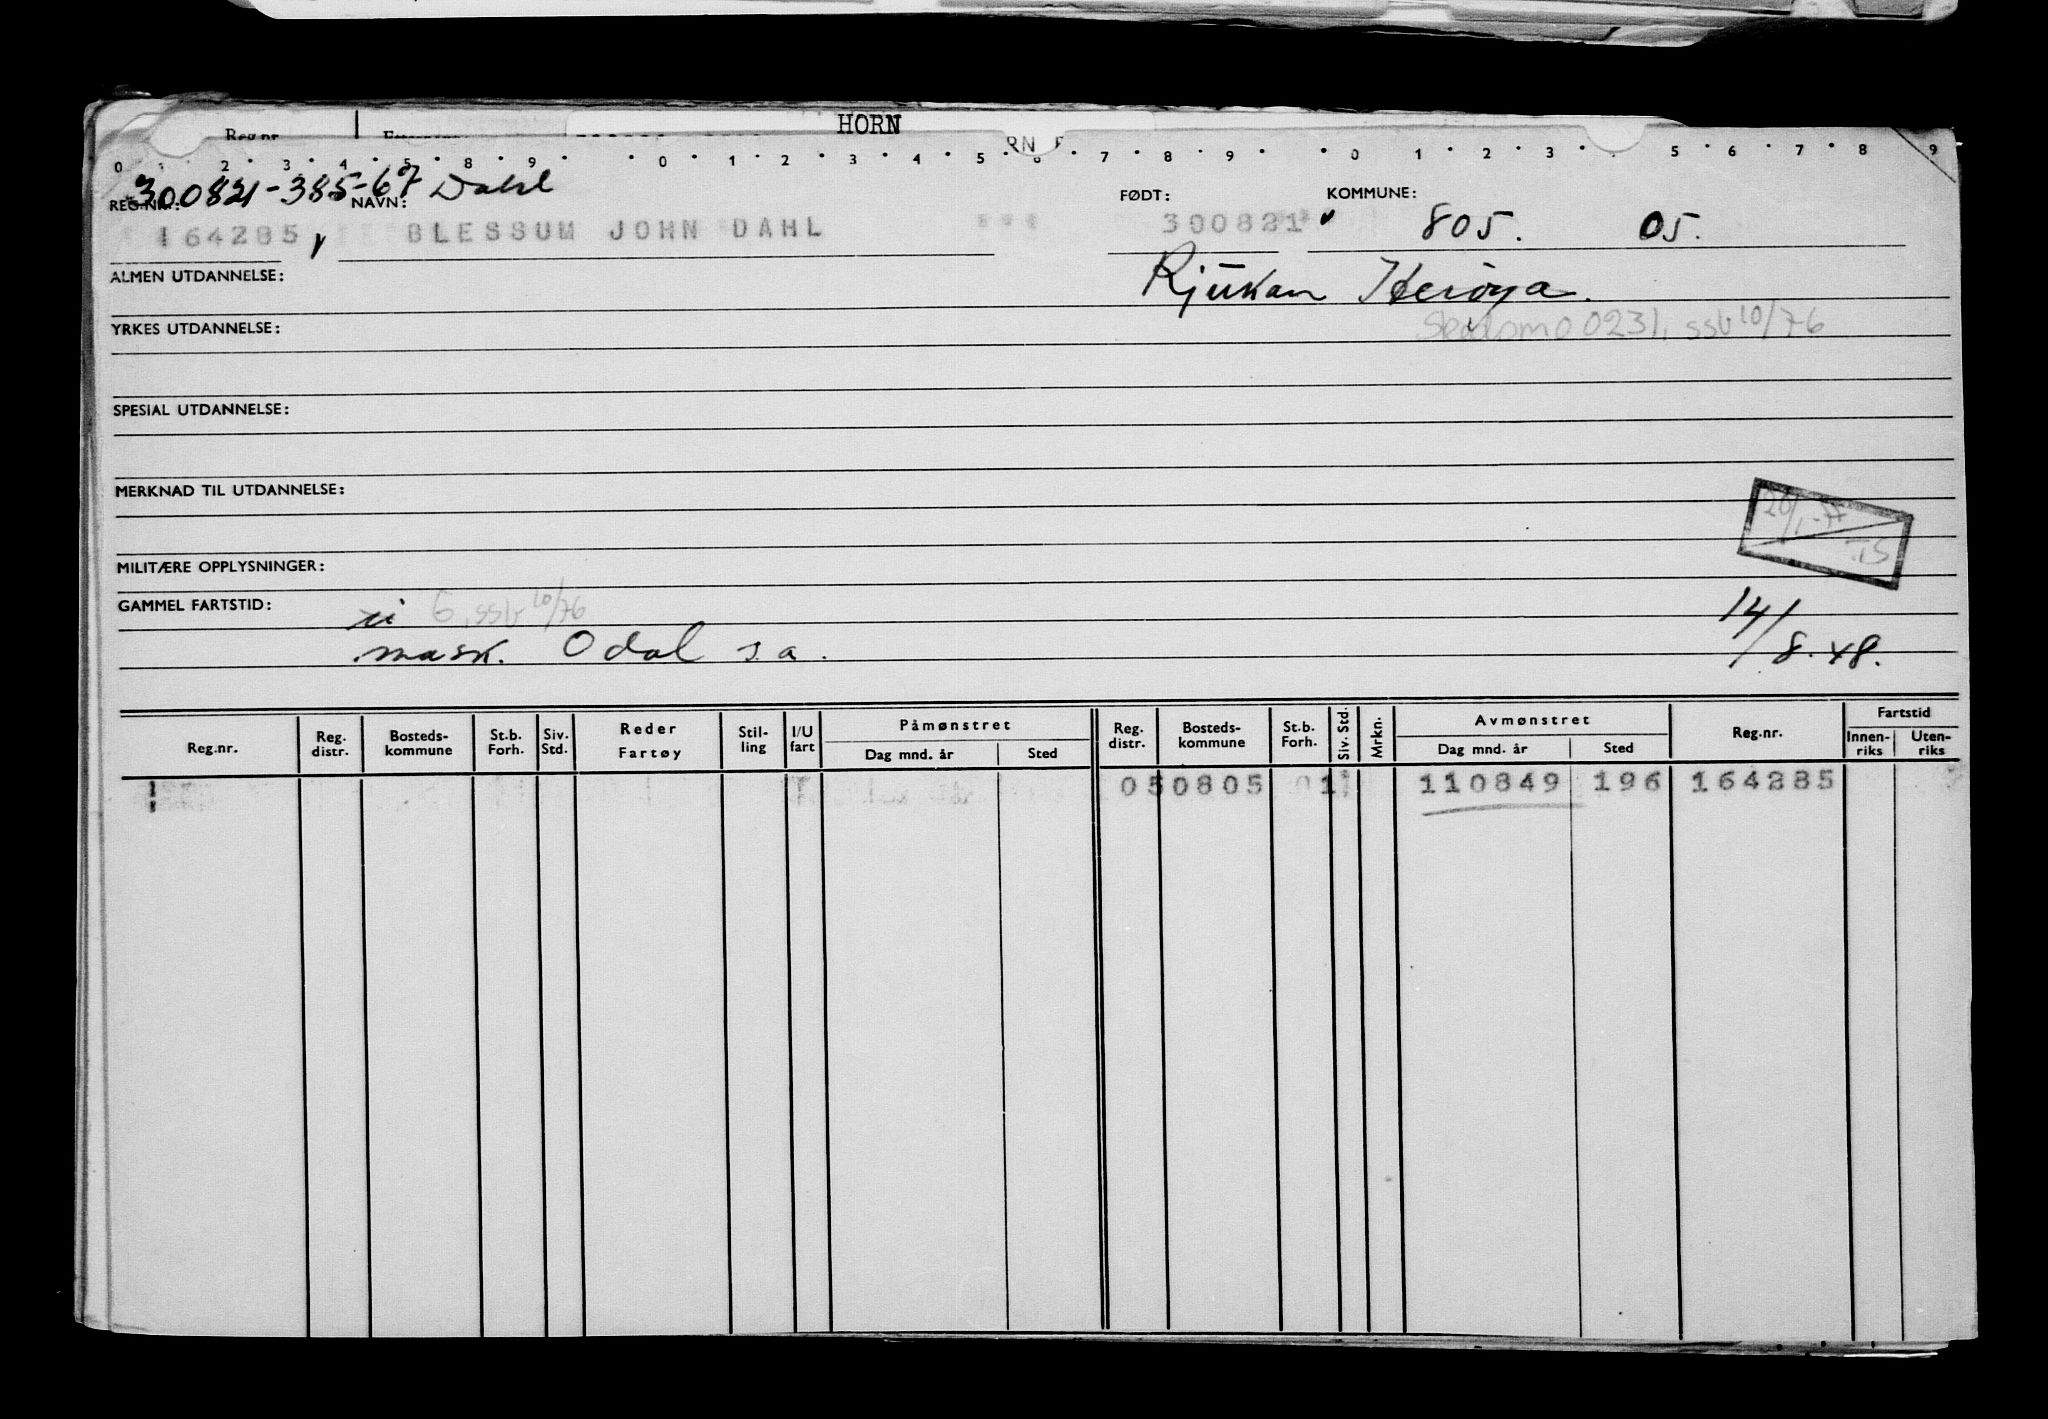 HORN
Reg.nr.
RN
0 . . 2 . 3 . 4 . 5 . 8 . 9 . . 0 . 1 . 2 . 3 . 4 . 5 . 6 . 7 . 8 . 9 . . 0 . 1 . 2 . 3 . . 5 . 6 . 7 . 8 . 9
300821-385-67 Dahl
REG.NR.: NAVN: FØDT: KOMMUNE:
164285 BLESSUM JOHN DAHL *** 300821* 805. 05.
ALMEN UTDANNELSE: Rjukan Herøya.
YRKES UTDANNELSE: 0231, ssb 10/76
SPESIAL UTDANNELSE:
MERKNAD TIL UTDANNELSE:
20/1-77
TS
MILITÆRE OPPLYSNINGER:
GAMMEL FARTSTID: 6, ssb 10/76
mask. Odal s.a. 14/8.48.
Reg.nr. Reg. distr. Bosteds-kommune St.b. Forh. Siv. Std. Reder Fartøy Stil-ling I/U fart Påmønstret Dag mnd. år Sted Reg. distr. Bosteds-kommune St.b. Forh. Siv. Std. Mrkn. Avmønstret Dag mnd. år Sted Reg.nr. Fartstid Innen-riks Uten-riks
050805 01 110849 196 164285